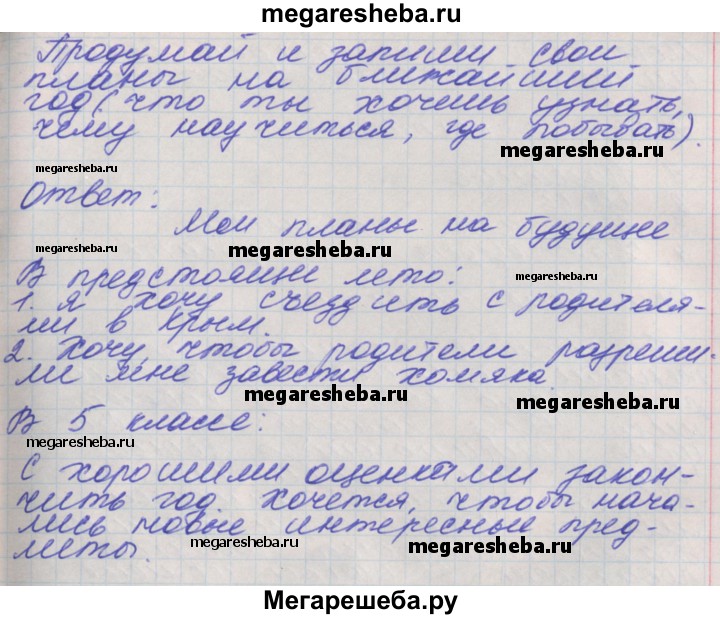 megaresheba.ru
Продумай и запиши свои
планы на ближайший
год (что ты хочешь узнать,
чему научиться, где побывать).
megaresheba.ru
megaresheba.ru
Ответ:
Мои планы на будущее
megaresheba.ru
megaresheba.ru
В предстоящие лето:
megaresheba.ru
1. Я хочу съездить с родителя-
ми в Крым.
2. Хочу, чтобы родители разреши-
ли мне завести хомяка.
megaresheba.ru
megaresheba.ru
В 5 классе:
megaresheba.ru
С хорошими оценками закон-
чить год. Хочется, чтобы нача-
лись новые интересные пред-
меты.
megaresheba.ru
megaresheba.ru
Мегарешеба.ру